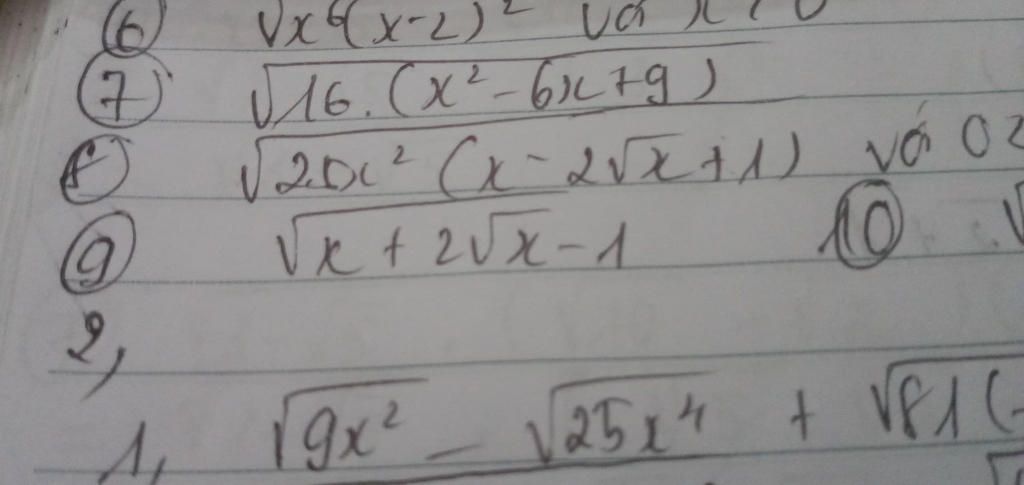 ⑥ √x⁶(x-2)²
⑦ √16.(x²-6x+9)
⑧ √25x²(x-2√x+1) và 0
⑨ √x+2√x-1 ⑩ √
2,
1, √9x² - √25x⁴ + √81(